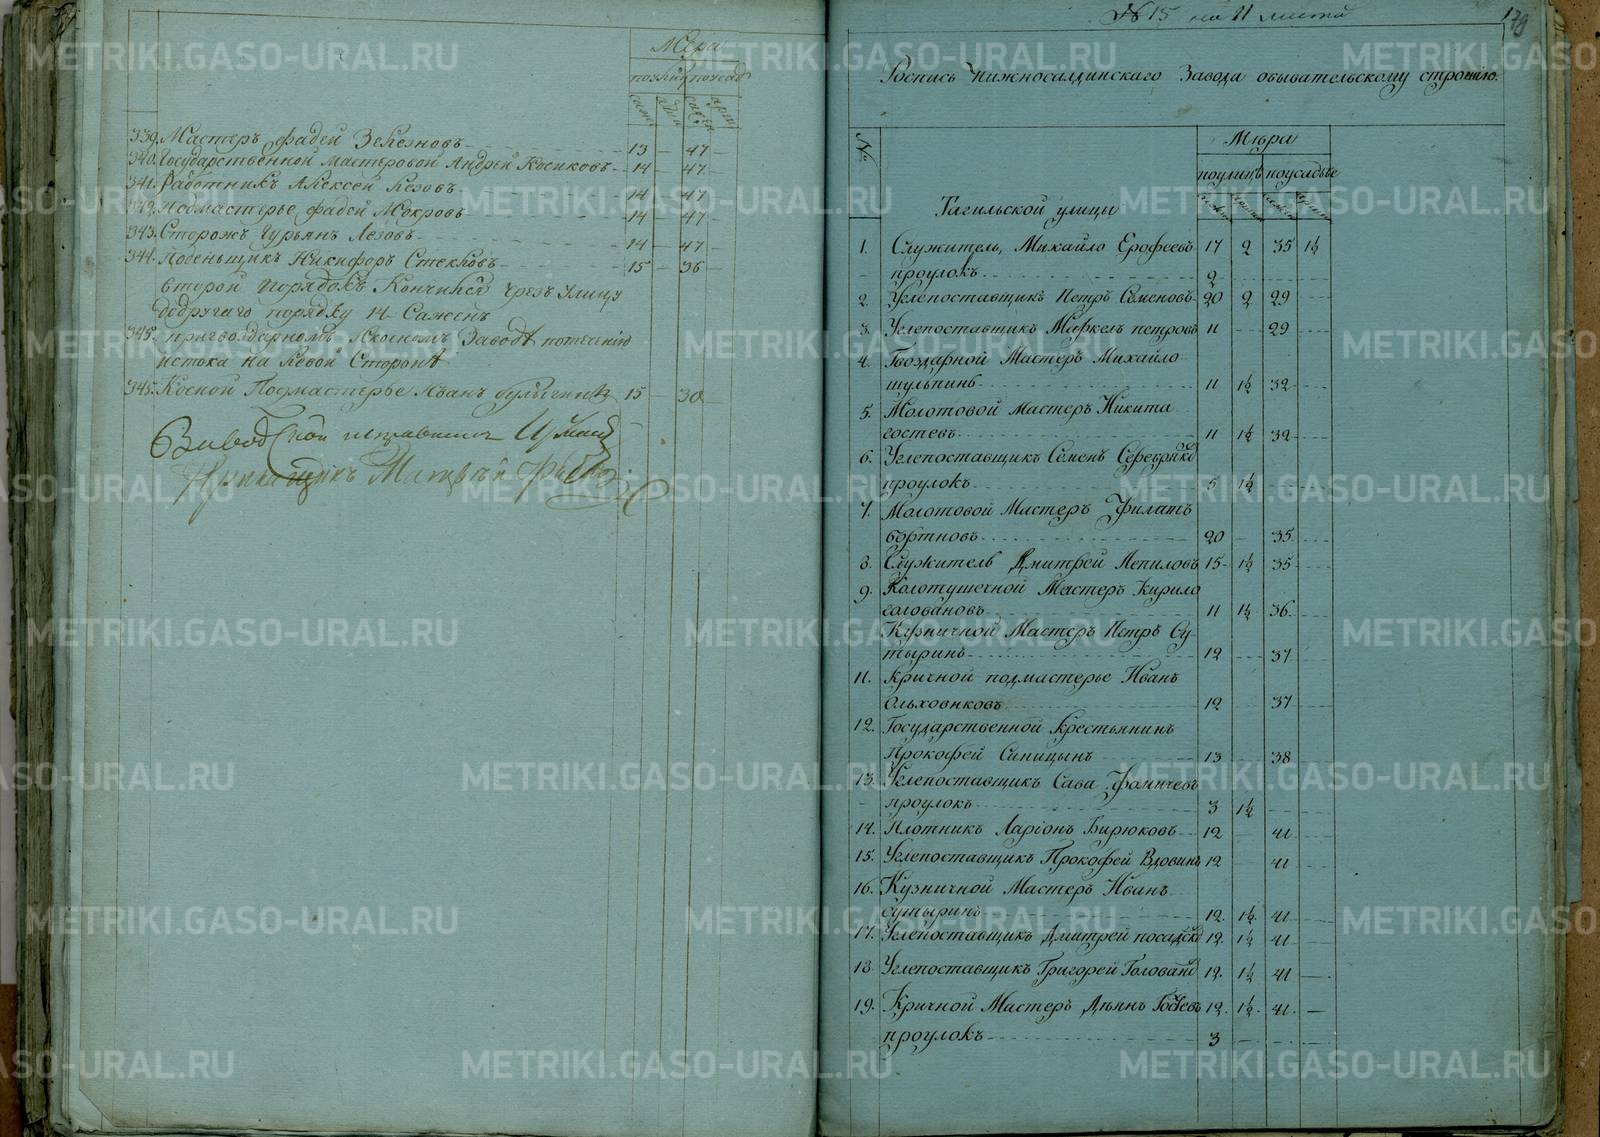 Мѣра
339. Мастеръ Фадей Зелезновъ 13 — 47 —
340. Государственной Мастеровой Андрей Косиковъ 14 — 47 —
341. Работникъ Алексей Лезовъ 14 47
342. Подмастерье Фадей Мокровъ 14 47
343. Сторожъ Гурьянъ Лезовъ 14 — 47 —
344. Поденьщикъ Никифоръ Стекловъ 15 36
второй порядокъ Кончился чрезъ Улицу
додругаго порядку 14 Саженъ
345.
истока на Левой Сторонѣ
345. Косной Подмастерье Иванъ 15 — 30
Приказчикъ Матвѣй
№ 15 на 11 листа
179
Роспись Нижносалдинскаго Завода обывательскому строению.
№
Мѣра
поулицѣ поусадьбе
Тагильской улицы
1. Служитель, Михайло Ерофеевъ 17 2 35 1½
проулокъ 2
2. Углепоставщикъ Петръ Семеновъ 20 2 29
3. Углепоставщикъ Маркелъ петровъ 11 29
4. Гвоздарной Мастеръ Михайло
шульпинъ 11 1½ 32
5. Молотовой Мастеръ Никита
гостевъ 11 1½ 32
6. Углепоставщикъ Семенъ
проулокъ 5 1½
7. Молотовой Мастеръ Филатъ
бортновъ 20 35
8. Служитель Дмитрей Лепиловъ 15 1½ 35
9. Колотушечной Мастеръ Кирило
головановъ 11 1½ 36
Кузничной Мастеръ Петръ Су
тыринъ 12 37
11. Кричной подмастерье Иванъ
Ольховиковъ 12 37
12. Государственной Крестьянинъ
Прокофей Синицынъ 13 38
13. Углепоставщикъ Сава Фомичевъ
проулокъ 3 1½
14. Плотникъ Ларіонъ Бирюковъ 12 41
15. Углепоставщикъ Прокофей Вдовинъ 12 41
16. Кузничной Мастеръ Иванъ
сутыринъ 12. 1½ 41
17. Углепоставщикъ Дмитрей 12. 1½ 41
18. Углепоставщикъ Григорей 12. 1½ 41 —
19. Кричной Мастеръ Демьянъ 12. 1½ 41. —
проулокъ 3
METRIKI.GASO-URAL.RU